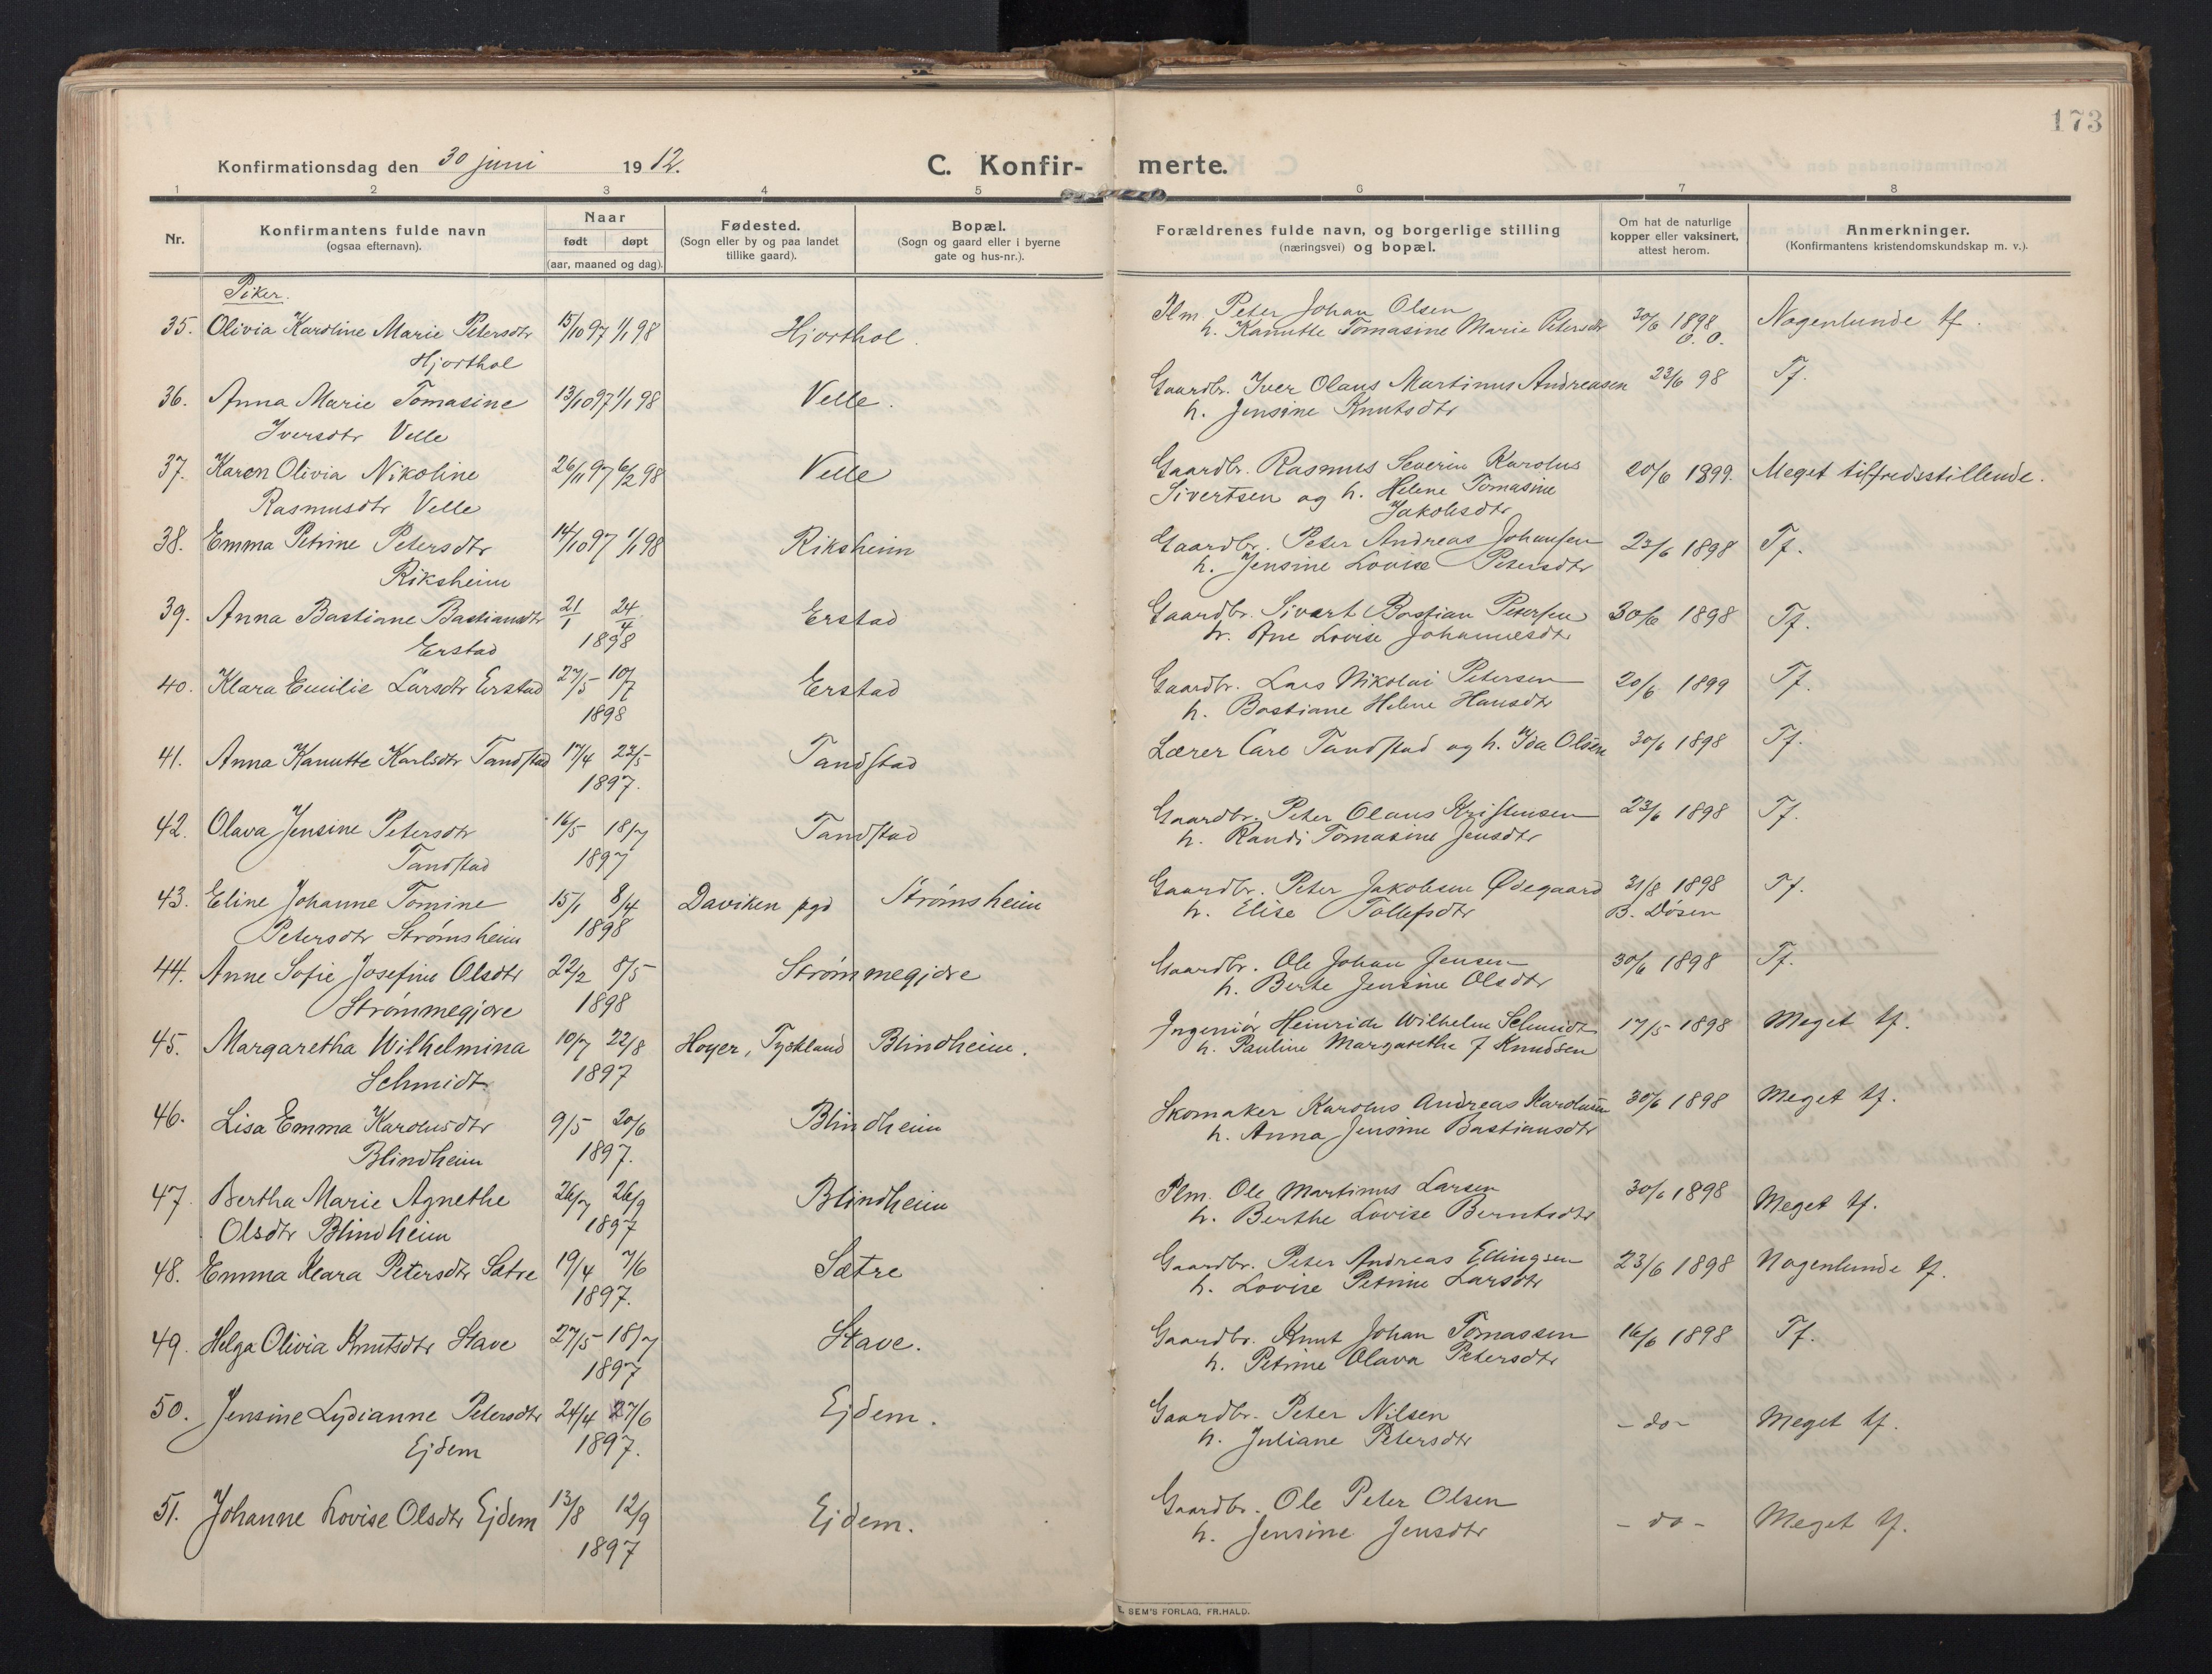 173
Konfirmationsdag den 30 juni 1912.
C. Konfir- merte.
1 2 3 4 5 6 7 8
Nr.
Konfirmantens fulde navn
(ogsaa efternavn).
Naar
født døpt
(aar, maaned og dag).
Fødested.
(Sogn eller by og paa landet
tillike gaard).
Bopæl.
(Sogn og gaard eller i byerne
gate og hus-nr.).
Forældrenes fulde navn, og borgerlige stilling
(næringsvei) og bopæl.
Om hat de naturlige
kopper eller vaksinert,
attest herom.
Anmerkninger.
(Konfirmantens kristendomskundskap m. v.).
Piker.
35. Olivia Karoline Marie Petersdtr 15/10 97 1/1 98 Hjorthol. Plm. Peter Johan Olsen 30/6 1898 Nogenlunde tf.
Hjorthol h. Kanutte Tomasine Marie Petersdtr O. O.
36. Anna Marie Tomasine 13/10 97 1/1 98 Velle. Gaardbr. Iver Olaus Martinus Andreasen 23/6 98 Tf.
Iversdtr Velle h. Jensine Knutsdtr
37. Karen Olivia Nikoline 26/11 97 6/2 98 Velle Gaardbr. Rasmus Severin Karolus 20/6 1899. Meget tilfredsstillende.
Rasmusdtr Velle Sivertsen og h. Helene Tomasine
Jakobsdtr
38. Emma Petrine Petersdtr 14/10 97 1/1 98 Riksheim Gaardbr. Peter Andreas Johansen 23/6 1898 Tf.
Riksheim h. Jensine Lovise Petersdtr
39. Anna Bastiane Bastiansdtr 21/1 24/4 Erstad Gaardbr. Sivert Bastian Petersen 30/6 1898 Tf.
Erstad 1898 h. Ane Lovise Johannesdtr
40. Klara Emilie Larsdtr Erstad 27/5 10/7 Erstad Gaardbr. Lars Nikolai Petersen 20/6 1899 Tf.
1898 h. Bastiane Helene Hansdtr
41. Anna Kanutte Karlsdtr Tandstad 17/4 23/5 Tandstad Lærer Carl Tandstad og h. Ida Olsen 30/6 1898 Tf.
1897.
42. Olava Jensine Petersdtr 16/5 18/7 Tandstad Gaardbr. Peter Olaus Kristensen 23/6 1898 Tf.
Tandstad 1897 h. Randi Tomasine Jensdtr
43. Eline Johanne Tomine 15/1 8/4 Daviken pgd Strømsheim Gaardbr. Peter Jakobsen Ødegaard 31/8 1898 Tf.
Petersdtr Strømsheim 1898 h. Elise Tollefsdtr B. Døsen
44. Anne Sofie Josefine Olsdtr 22/2 8/5 Strømmegjøre Gaardbr. Ole Johan Jensen 30/6 1898 Tf.
Strømmegjøre 1898 h. Berte Jensine Olsdtr
45. Margaretha Wilhelmina 10/7 22/8 Hoyer, Tyskland Blindheim. Ingeniør Heinrich Wilhelm Schmidt 17/5 1898 Meget tf.
Schmidt 1897 h. Pauline Margarethe f Knudsen
46. Lisa Emma Karolusdtr 9/5 20/6 Blindheim Skomaker Karolus Andreas Karolusen 30/6 1898 Meget tf.
Blindheim 1897. h. Anna Jensine Bastiansdtr
47. Bertha Marie Agnethe 26/7 26/9 Blindheim Plm. Ole Martinus Larsen 30/6 1898 Meget tf.
Olsdtr Blindheim 1897 h. Berthe Lovise Berntsdtr
48. Emma Klara Petersdtr Sætre 19/4 7/6 Sætre Gaardbr. Peter Andreas Ellingsen 23/6 1898 Nogenlunde tf.
1897. h. Lovise Petrine Larsdtr
49. Helga Olivia Knutsdtr Stave 27/5 18/7 Stave. Gaardbr. Knut Johan Tomassen 16/6 1898 Tf.
1897 h. Petrine Olava Petersdtr
50. Jensine Lydianne Petersdtr 24/4 27/6 Ejdem. Gaardbr. Peter Nilsen - do - Meget tf.
Ejdem 1897. h. Juliane Petersdtr
51. Johanne Lovise Olsdtr Ejdem 13/8 12/9 Ejdem. Gaardbr. Ole Peter Olsen - do - Meget tf.
1897 h. Jensine Jensdtr
E. SEM'S FORLAG, FR.HALD.